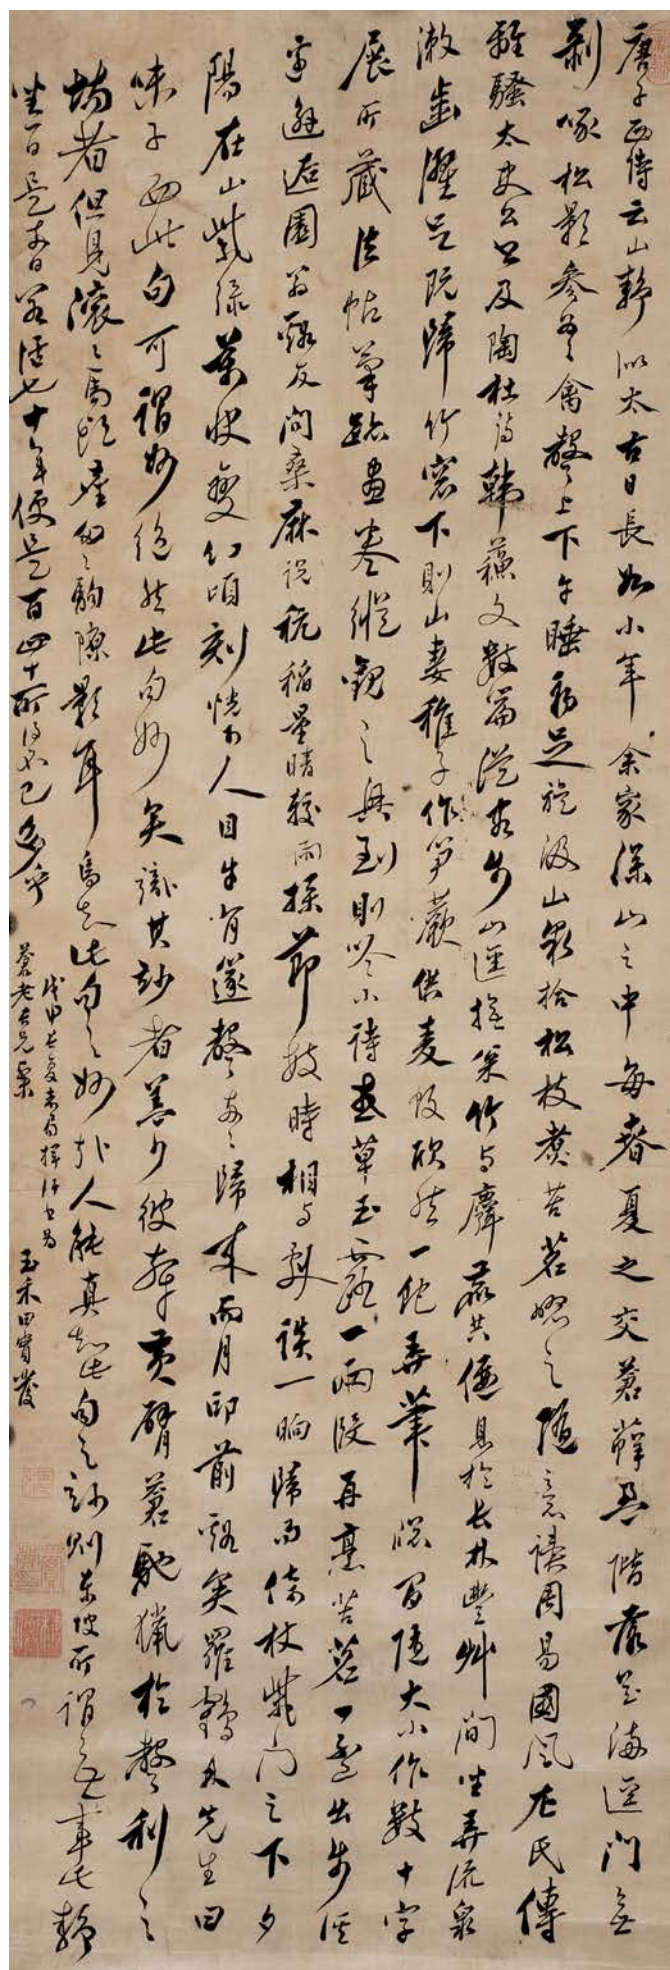 唐子西詩云山靜似太古日長如小年余家深山之中每春夏之交蒼蘚盈階落花滿逕門無
剝啄松影參差禽聲上下午睡初足旋汲山泉拾松枝煮苦茗啜之隨意讀周易國風左氏傳
離騷太史公書及陶杜詩韓蘇文數篇從容步山逕撫松竹與麛犢共偃息於長林豐艸間坐弄流泉
漱齒濯足既歸竹窗下則山妻稚子作筍蕨供麥飯欣然一飽弄筆窗間隨大小作數十字
展所藏法帖筆跡畫卷縱觀之興到則吟小詩或草玉露一兩段再烹苦茗一盃出步溪
邊邂逅園翁溪友問桑麻說秔稻量晴較雨探節數時相與劇談一晌歸而倚杖柴門之下夕
陽在山紫綠萬狀變幻頃刻恍可人目牛背篴聲兩兩歸來而月印前溪矣羅鶴林先生曰
味子西此句可謂妙絕然此句妙矣識其妙者蓋少彼牽黃臂蒼馳獵於聲利之
場者但見滾滾馬頭塵匆匆駒隙影耳烏知此句之妙哉人能真知此句之妙則東坡所謂無事此靜
坐一日是兩日若活七十年便是百四十所得不已多乎
戊申長夏 揮汗書為
蒼老長兄粲
玉禾田實發